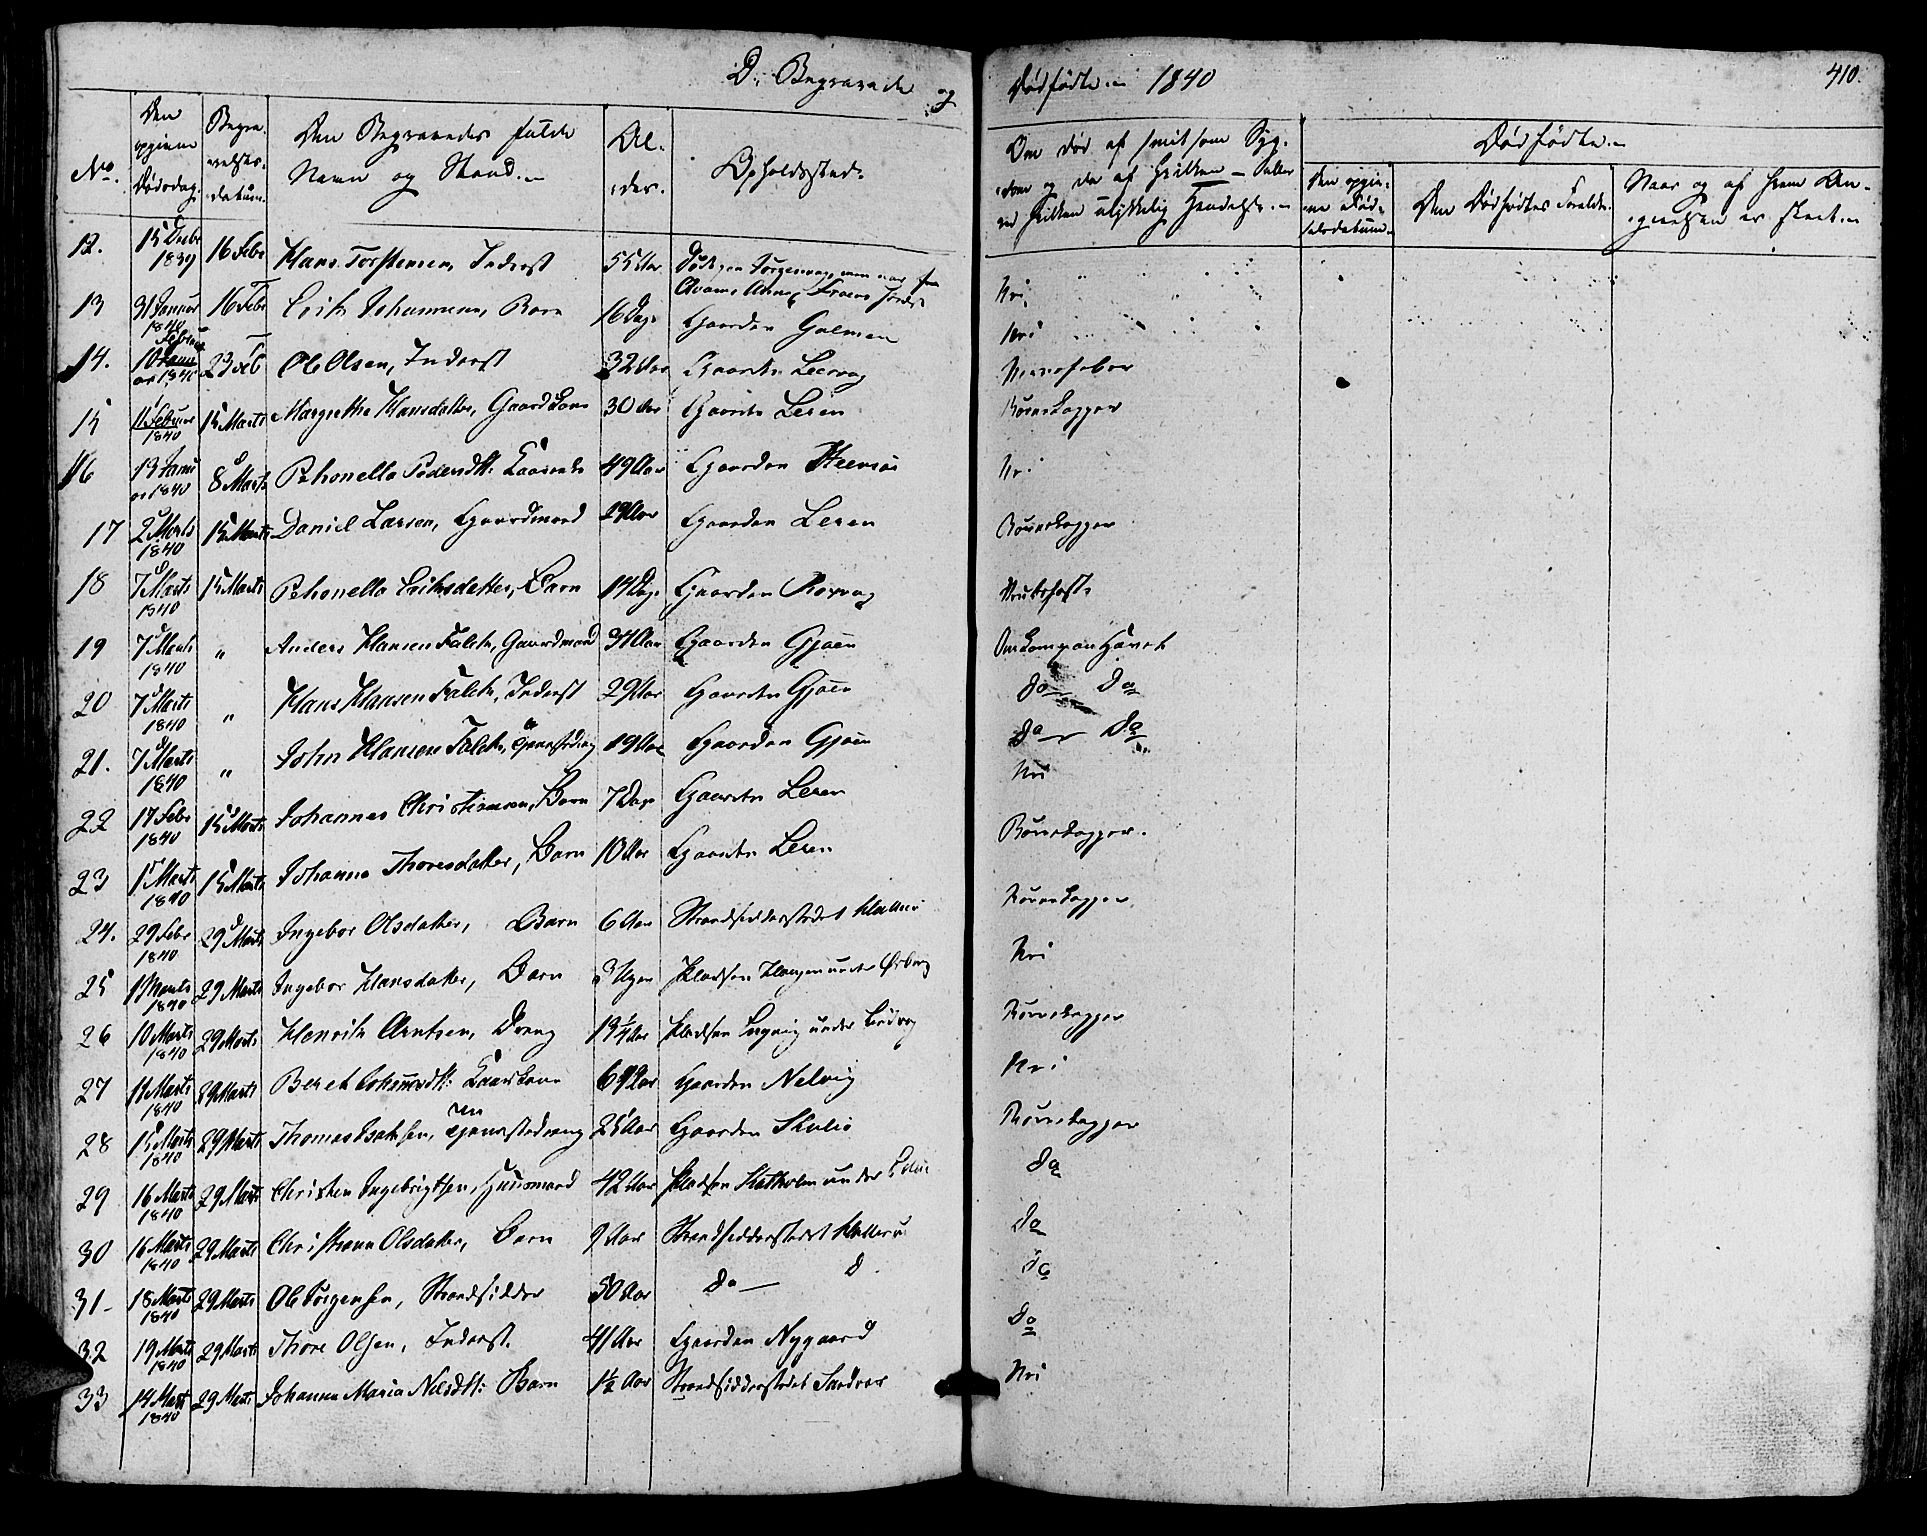 D. Begravede og
Dødfødte. 1840
410.
No.
Den opgivne Dødsdag.
Begravelses-datum.
Den Begravedes fulde Navn og Stand.
Al-der.
Opholdssted.
Om død af smitsom Syg-dom og da af hvilken — eller ved hvilken ulykkelig Hændelse.
Dødfødte.
Den opgiv-ne Fød-selsdatum.
Den Dødfødtes Forældre.
Naar og af hvem An-givelsen er skeet.
12. 15 Decbr 1839 16 Febr Hans Torstensen, Inderst 55 Aar Nei
13 31 Januar 1840 16 Febr Erik Johannesen, Barn 16 Dage Gaarden Gulmen Nei
14. 10 Februar 1840 23 Feb Ole Olsen, Inderst 32 Aar Gaarden Leervog Nervefeber
15 11 Februar 1840 15 Marts Margrethe Hansdatter, Gaardkone 30 Aar Gaarden Leren Børnekopper
16 13 Januar 1840 8 Marts Petronelle Pedersdtr: Kaarenke 49 Aar Gaarden Nei
17 2 Marts 1840 15 Marts Daniel Larsen, Gaardmand 29 Aar Gaarden Leren Børnekopper
18 7 Marts 1840 15 Marts Petronelle Eriksdatter, Barn 14 Dage Gaarden Roxvog
19 7 Marts 1840 " Anders Hansen Falch, Gaardmand 34 Aar Gaarden Gjøen Omkom paa Havet
20 7 Marts 1840 " Hans Hansen Falch, Inderst 29 Aar Gaarden Gjøen do — do
21. 7 Marts 1840 " John Hansen Falch, Tjenestedreng 19 Aar Gaarden Gjøen do — do
22 17 Febr 1840 15 Marts Johannes Christiansen, Barn 7 Dage Gaarden Leren Nei
23 1 Marts 1840 15 Marts Johanne Thoresdatter, Barn 10 Aar Gaarden Leren Børnekopper.
24. 29 Febr 1840 29 Marts Ingebor Olsdatter, Barn 6 Aar Strandsidderstedet Børnekopper
25 1 Marts 1840 29 Marts Ingebor Hansdatter, Barn 3 Uger Pladsen under Nei
26 10 Marts 1840 29 Marts Henrik Arntsen, Dreng 13¼ Aar Pladsen under Børnekopper
27 11 Marts 1840 29 Marts Beret Kaarkone 69 Aar Gaarden Nelvig Nei
28 15 Marts 1840 29 Marts Thomas Isaksen, Tjenestedreng 25 Aar Gaarden Børnekopper
29 16 Marts 1840 29 Marts Christen Ingebrigtsen, Huusmand 42 Aar Pladsen under do
30 16 Marts 1840 29 Marts Christiana Olsdatter, Barn 9 Aar Strandsidderstedet do
31 18 Marts 1840 29 Marts Ole Jørgensen, Strandsidder 50 Aar do — do do
32 19 Marts 1840 29 Marts Thore Olsen, Inderst. 41 Aar Gaarden Nygaard do
33 14 Marts 1840 29 Marts Johanna Maria Nilsdtr: Barn 1½ Aar Strandsidderstedet Nei